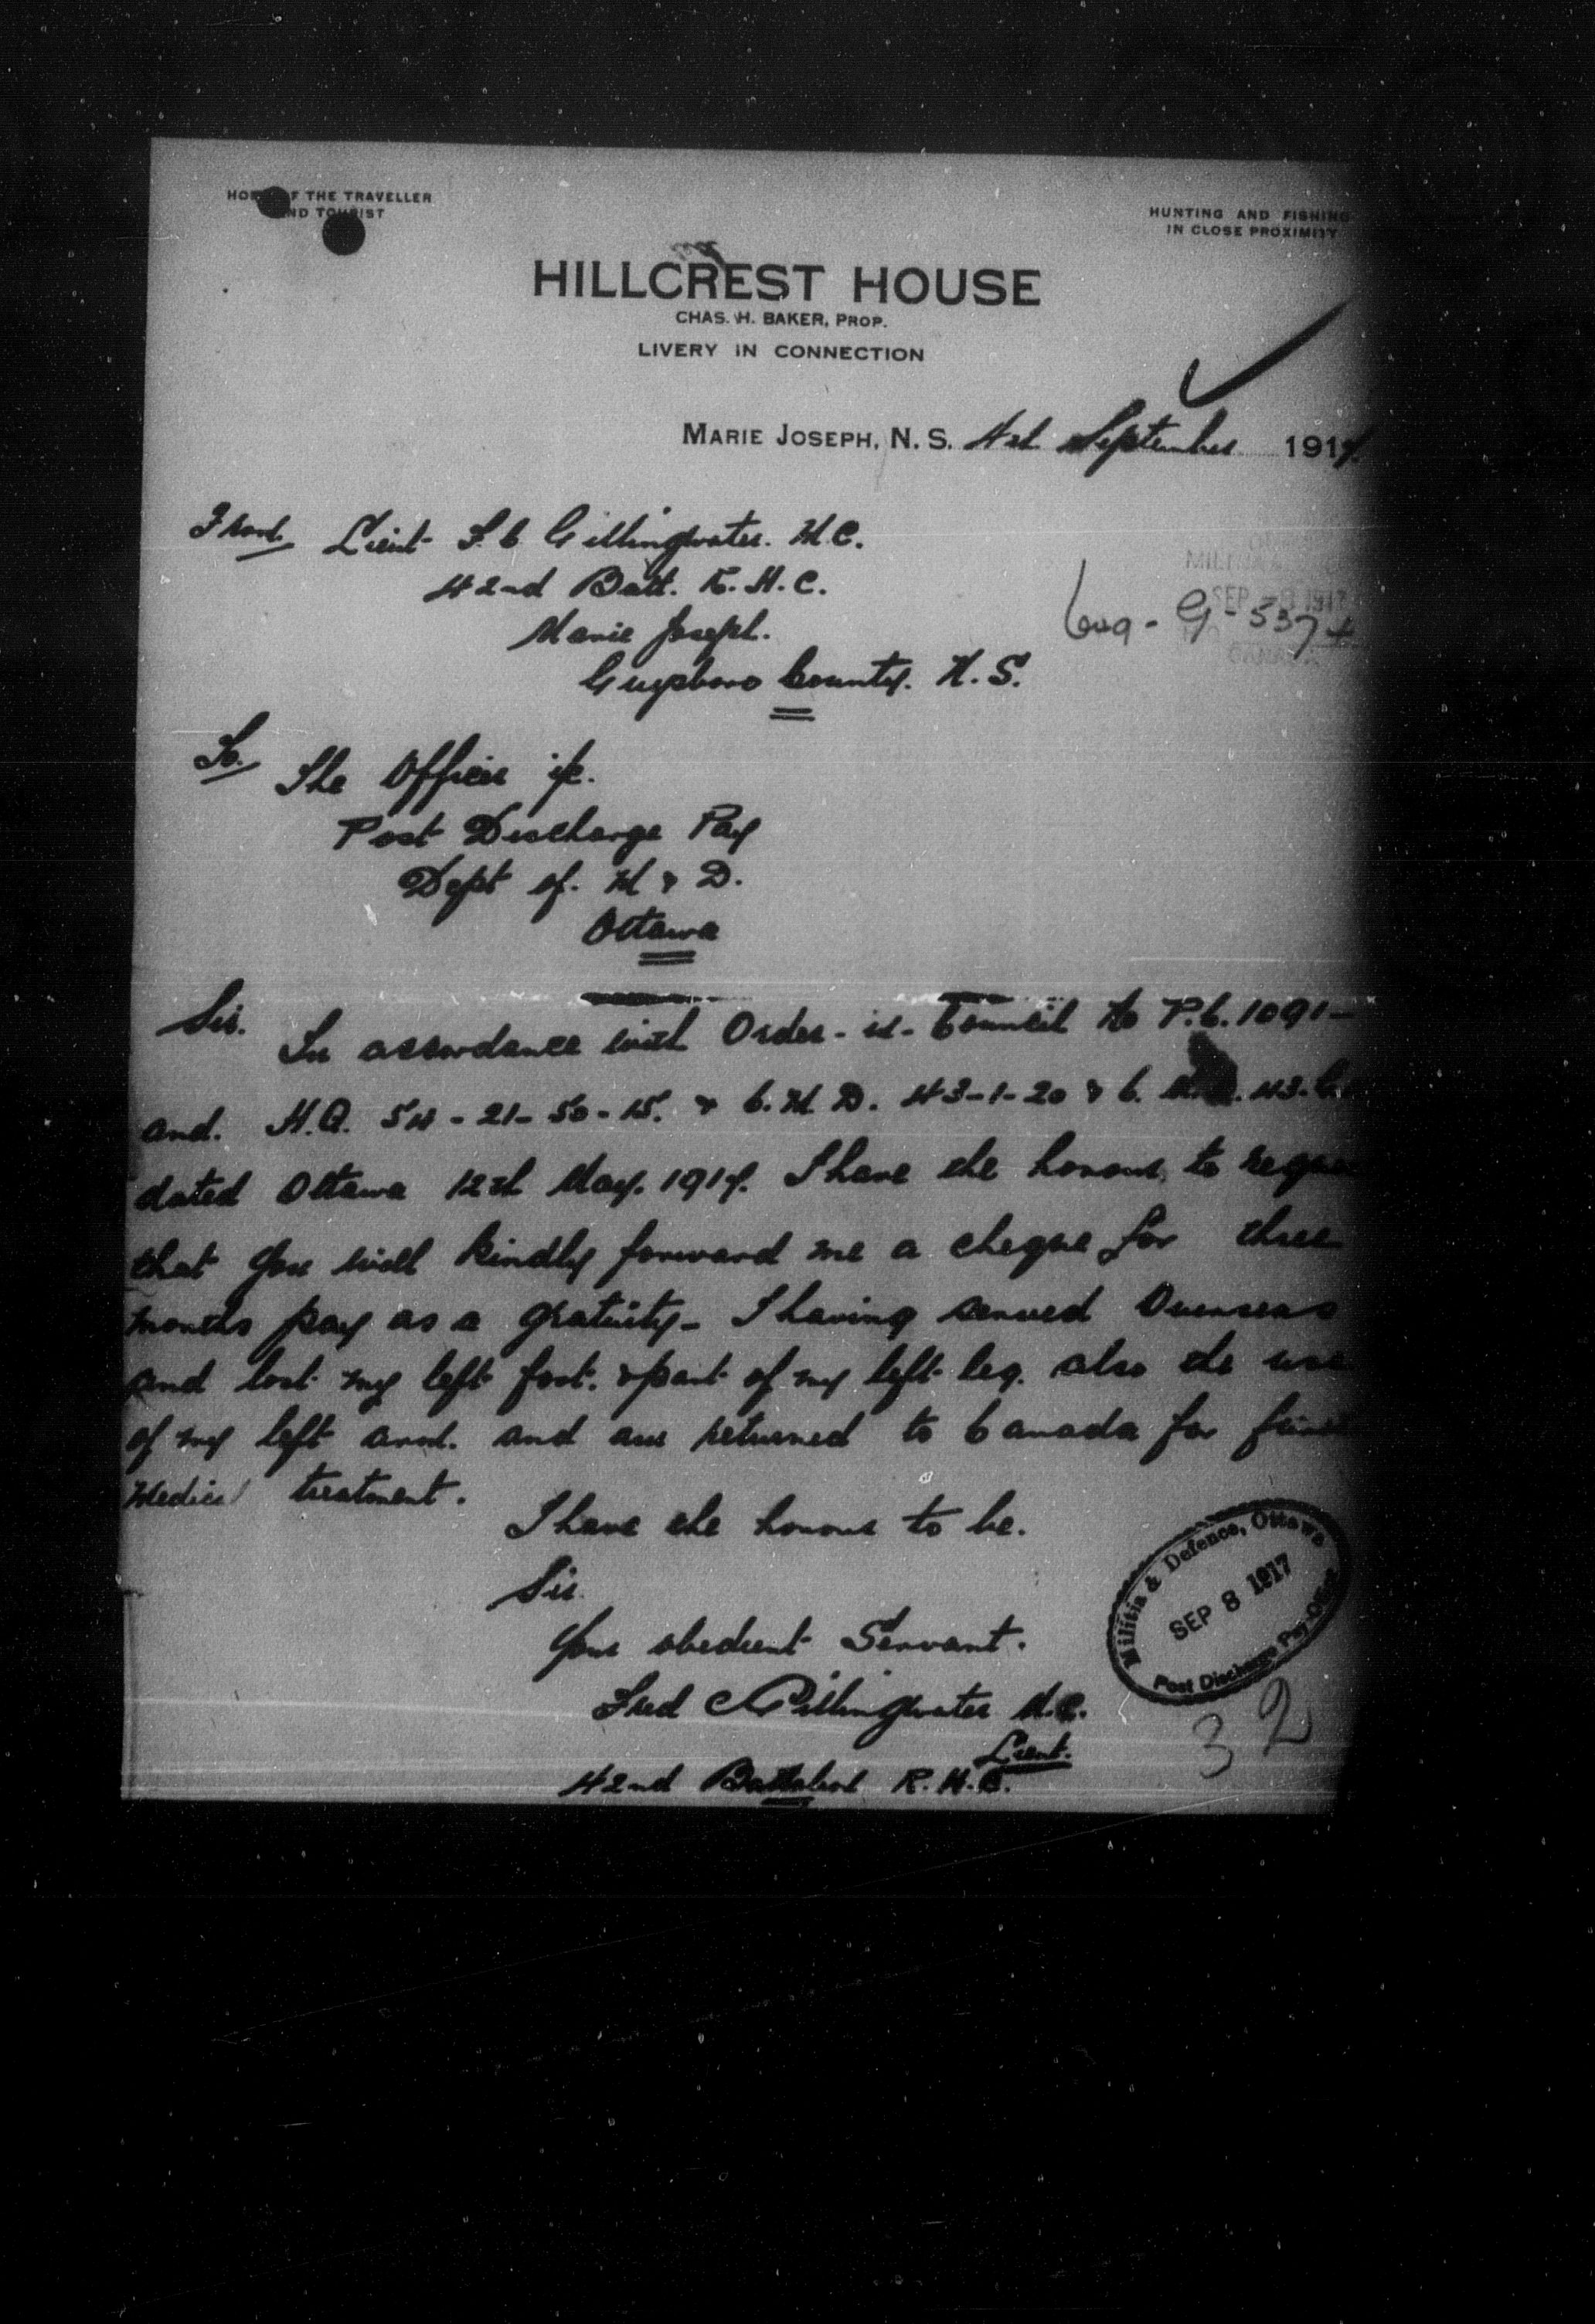 HOME OF THE TRAVELLER
AND TOURIST
HUNTING AND FISHING
IN CLOSE PROXIMITY
HILLCREST HOUSE
CHAS. H. BAKER, PROP.
LIVERY IN CONNECTION
MARIE JOSEPH, N. S. 4th September 1917.
From Lieut F. C Gillingwater. M.C.
42nd Batt. R. H. C.
Marie Joseph.
Guysboro County. N. S.
SEP 8 1917
649-G-537
To. The Officer i/c.
Post Discharge Pay
Dept of. M & D.
Ottawa
Sir. In accordance with Order-in-Council No P.C. 1091-
and. H.Q. 54-21-50-15. & C. M D. 43-1-20 & C. 43.
dated Ottawa 12th May. 1917. I have the honour to
that you will kindly forward me a cheque for three
months pay as a gratuity- I having served Overseas
and lost my left foot. & part of my left leg. also the use
of my left arm. and am returned to Canada for
Medical treatment.
I have the honour to be.
Sir.
Your obedient Servant.
Fred C Gillingwater M.C.
Lieut.
42nd Battalion R. H. C.
Militia & Defence, Ottawa
SEP 8 1917
Post Discharge Pay Office
32